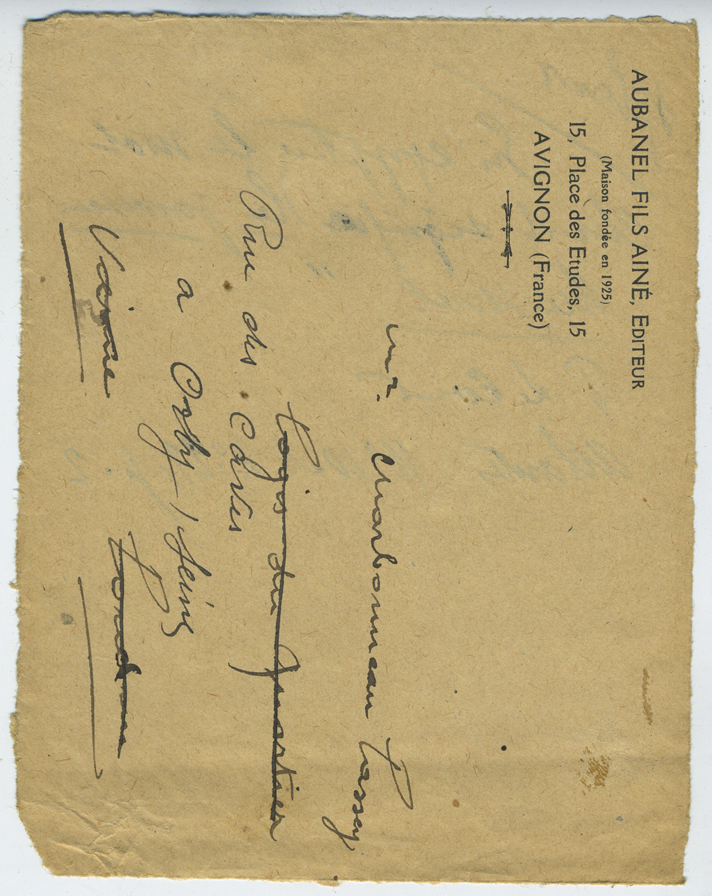 AUBANEL FILS AINÉ, EDITEUR
(Maison fondée en 1925)
15, Place des Etudes, 15
AVIGNON (France)
Mr. Charbonneau Lassay
Logis du Quartier
Rue des
a
Vienne Loudun